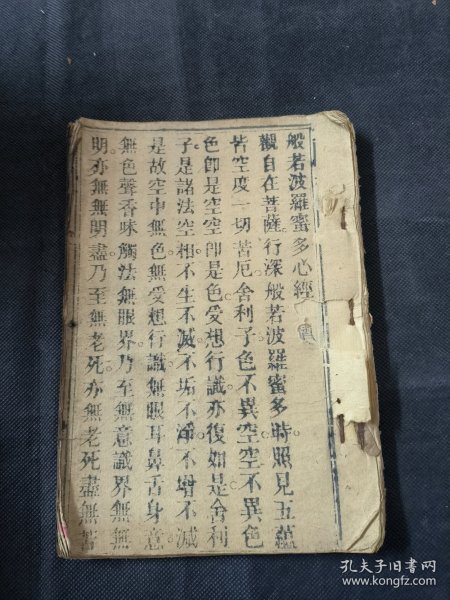 般若波羅蜜多心經
觀自在菩薩。行深般若波羅蜜多時照見五蘊
皆空度一切苦厄。舍利子色不異空空不異色
色卽是空空卽是色受想行識亦復如是舍利
子是諸法空相不生不滅不垢不淨不增不減
是故空中無色無受想行識無眼耳鼻舌身意
無色聲香味觸法無眼界乃至無意識界無無
明亦無無明盡乃至無老死亦無老死盡無苦
孔夫子旧书网
www.kongfz.com